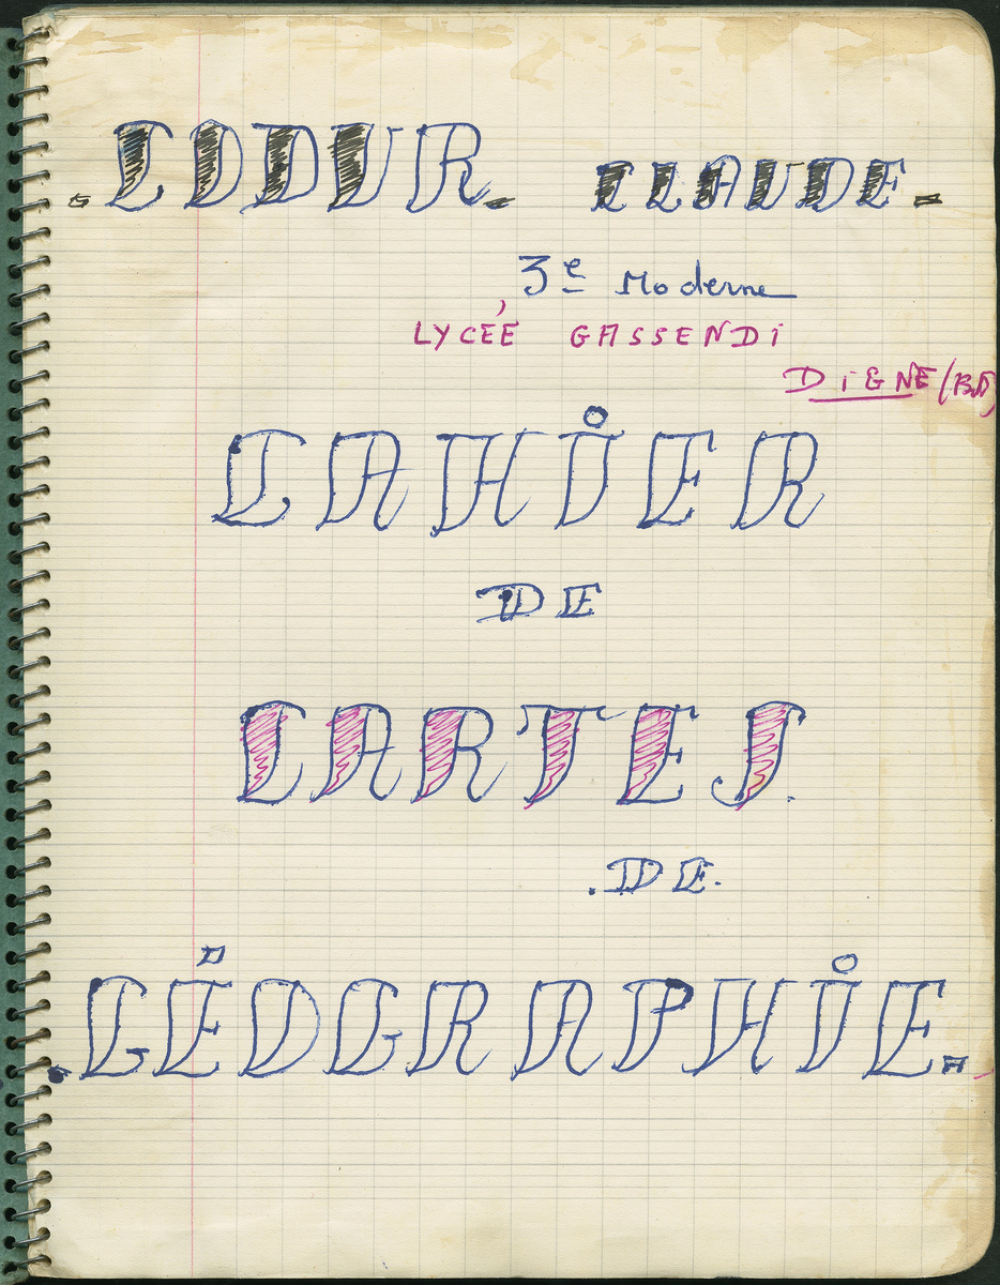 . CODUR. CLAUDE.
3e Moderne
LYCÉE GASSENDI
DIGNE (BA)
CAHIER
DE
CARTES.
.DE.
.GÉOGRAPHIE.